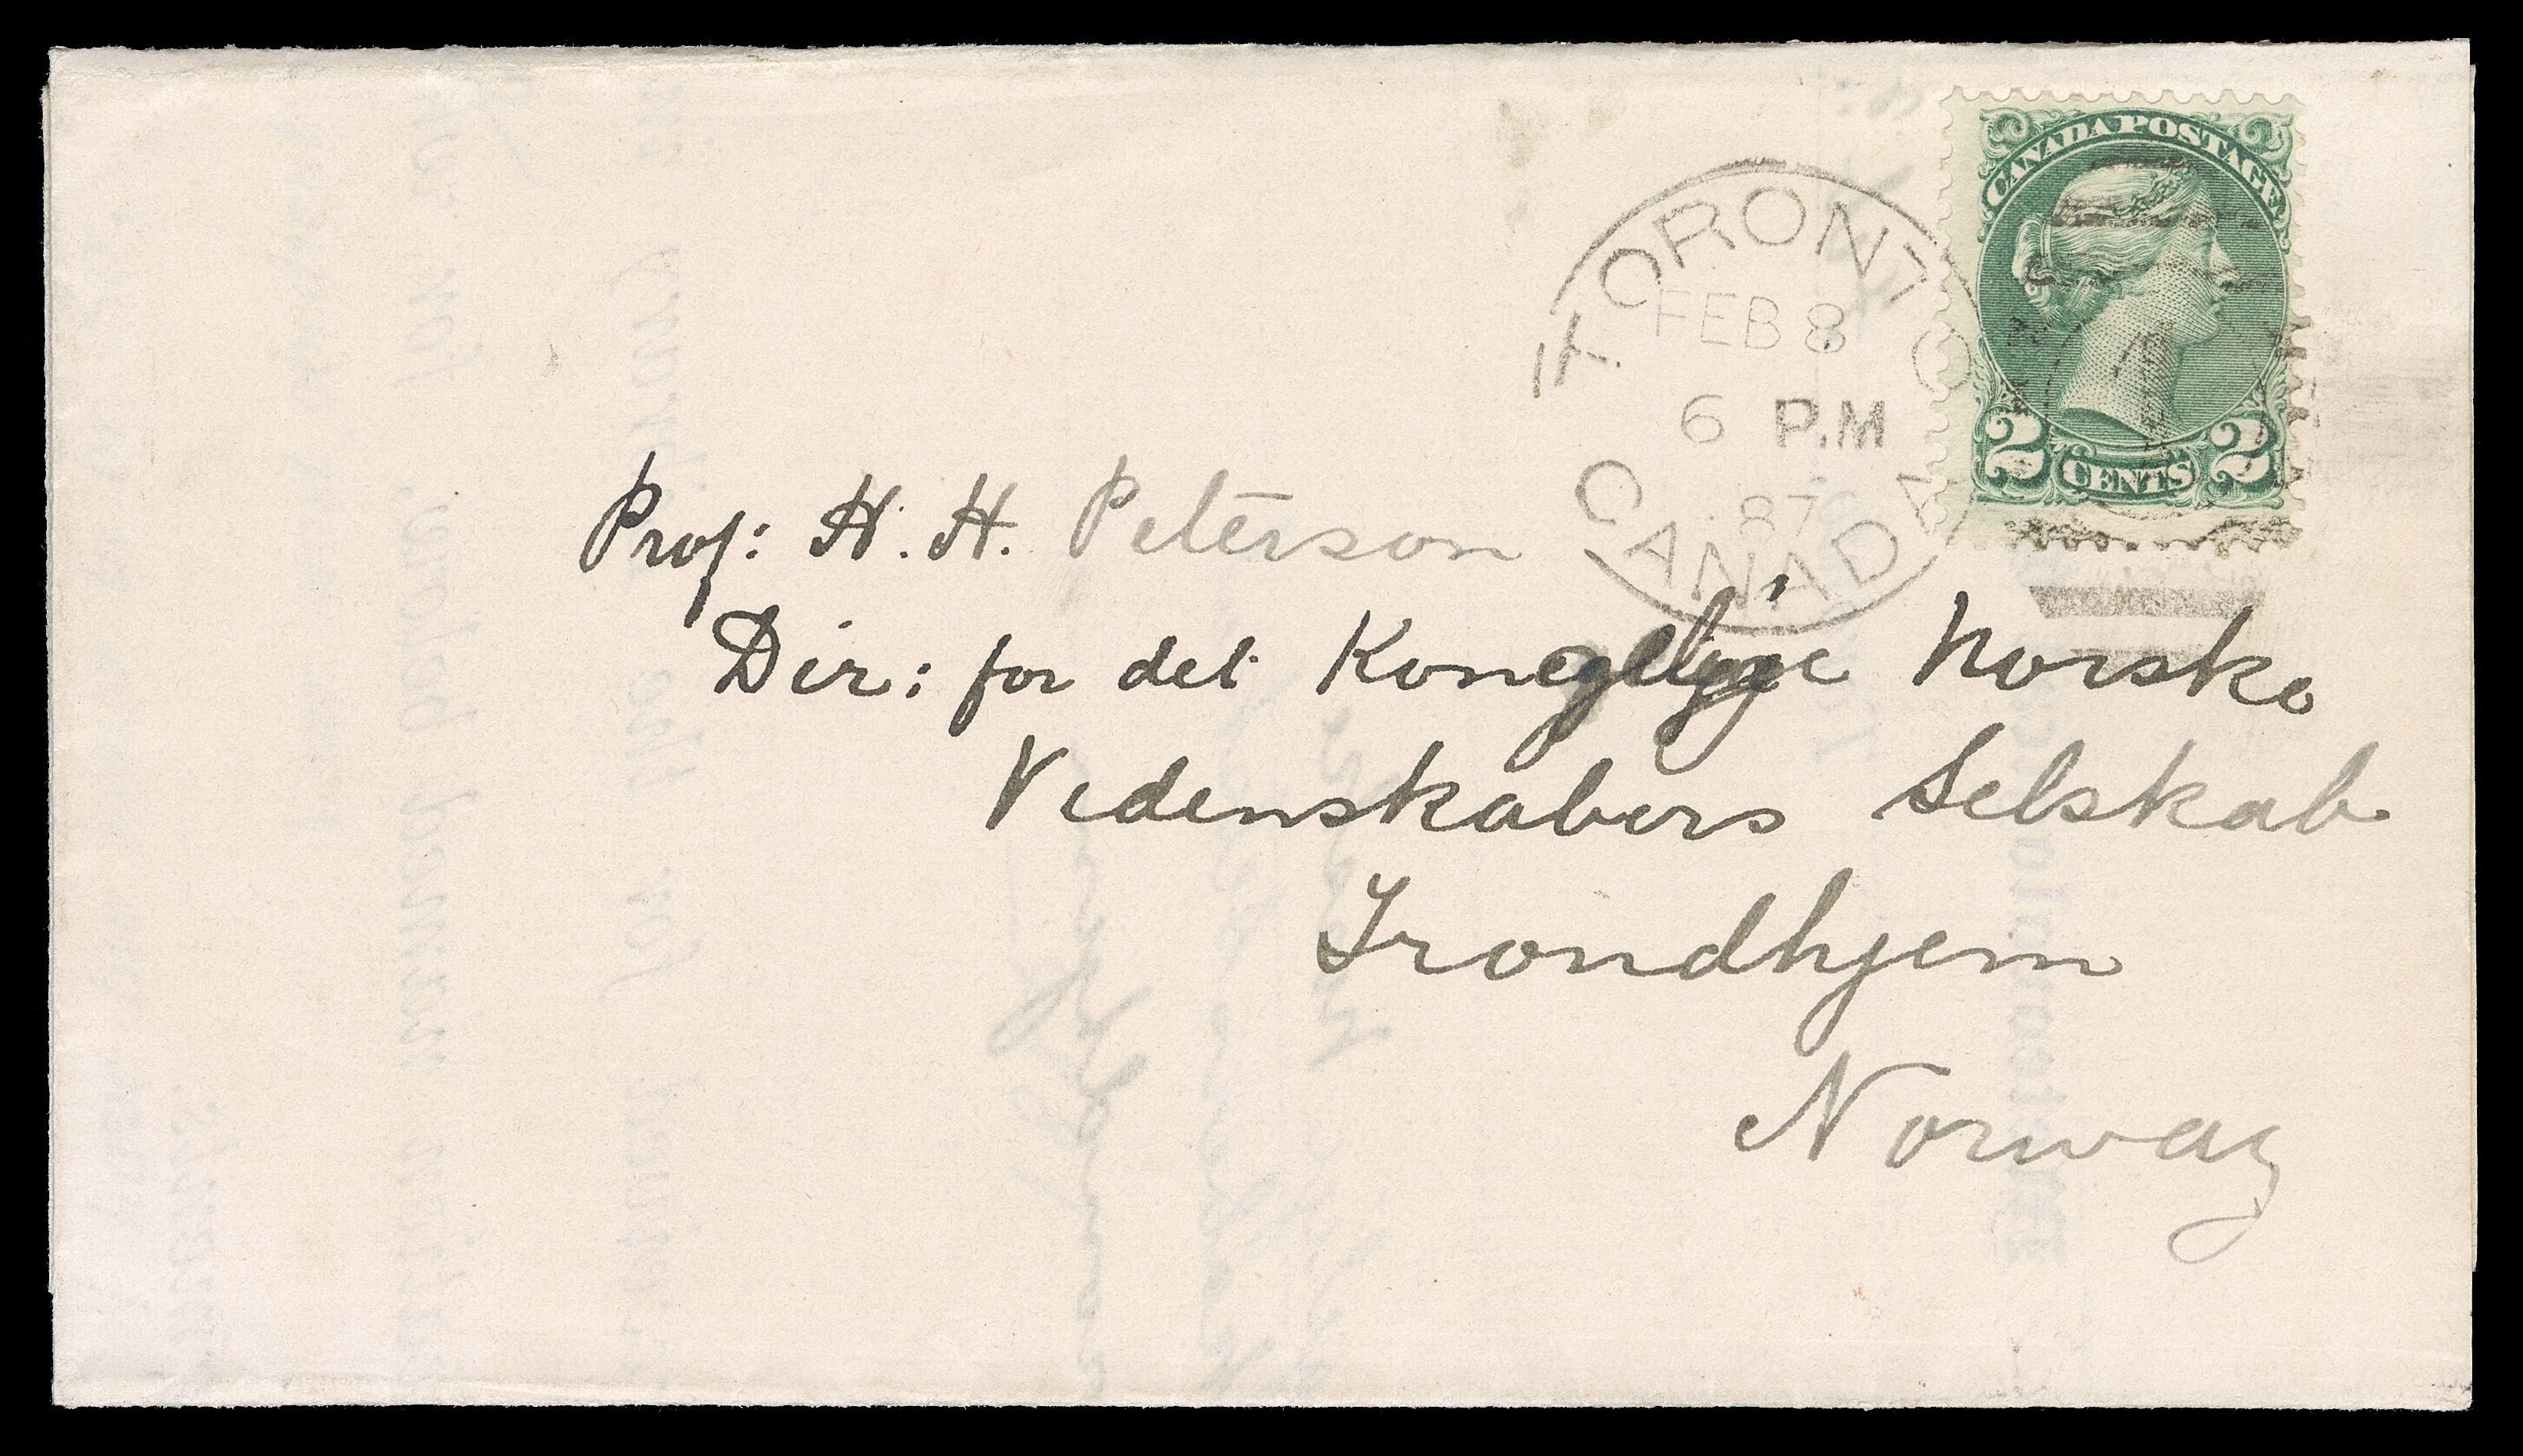 CANADA POSTAGE
2 CENTS 2
TORONTO
FEB 8
6 P.M
87
CANADA
Prof: H. H. Peterson
Dir: for det Kongelige Norske
Videnskabers Selskab
Trondhjem
Norway